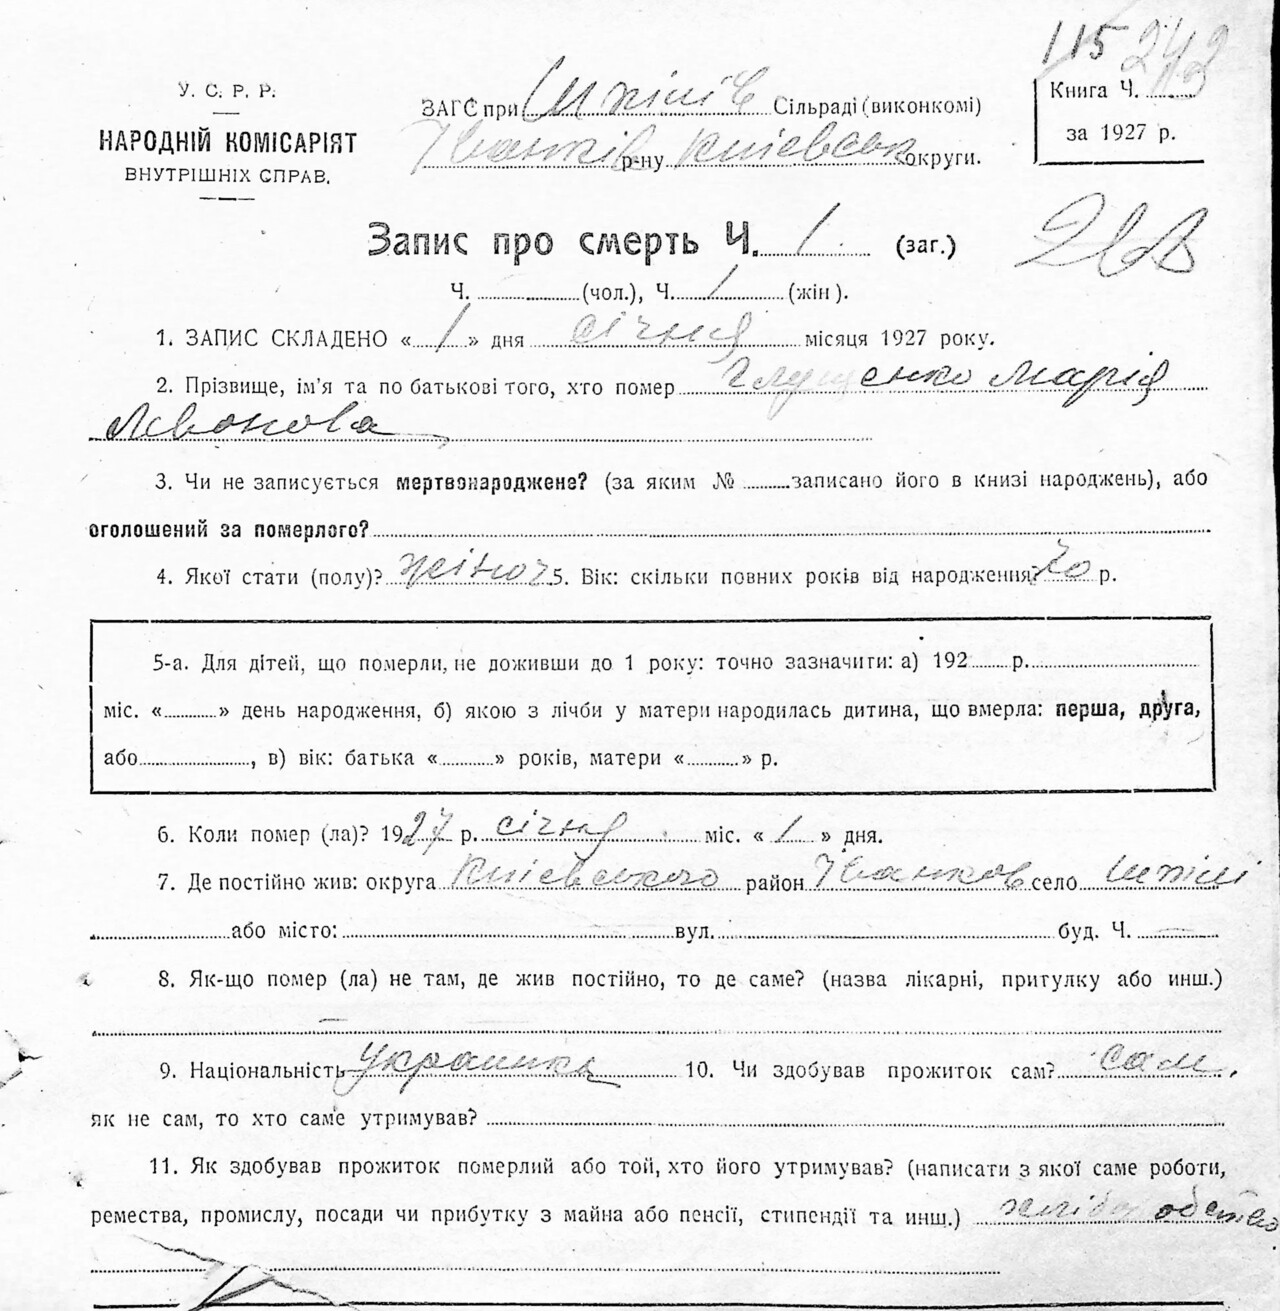 115 242
У. С. Р. Р.
НАРОДНІЙ КОМІСАРІЯТ
ВНУТРІШНІХ СПРАВ.
ЗАГС при Шпілів Сільраді (виконкомі)
Іванків р-ну Київськ округи.
Книга Ч.
за 1927 р.
Запис про смерть Ч. 1 (заг.)
Ч. (чол.), Ч. 1 (жін).
1. ЗАПИС СКЛАДЕНО « 1 » дня січня місяця 1927 року.
2. Прізвище, ім'я та по батькові того, хто помер Глущенко Марія
Левонова
3. Чи не записується мертвонароджене? (за яким № записано його в книзі народжень), або
оголошений за померлого?
4. Якої стати (полу)? жіноч 5. Вік: скільки повних років від народження? 70 р.
5-а. Для дітей, що померли, не доживши до 1 року: точно зазначити: а) 192 р.
міс. « » день народження, б) якою з лічби у матери народилась дитина, що вмерла: перша, друга,
або , в) вік: батька « » років, матери « » р.
6. Коли помер (ла)? 1927 р. січня міс. « 1 » дня.
7. Де постійно жив: округа Київського район Іванков село Шпілі
або місто: вул. буд. Ч.
8. Як-що помер (ла) не там, де жив постійно, то де саме? (назва лікарні, притулку або инш.)
9. Національність Украинка 10. Чи здобував прожиток сам? сам,
як не сам, то хто саме утримував?
11. Як здобував прожиток померлий або той, хто його утримував? (написати з якої саме роботи,
ремества, промислу, посади чи прибутку з майна або пенсії, стипендії та инш.)